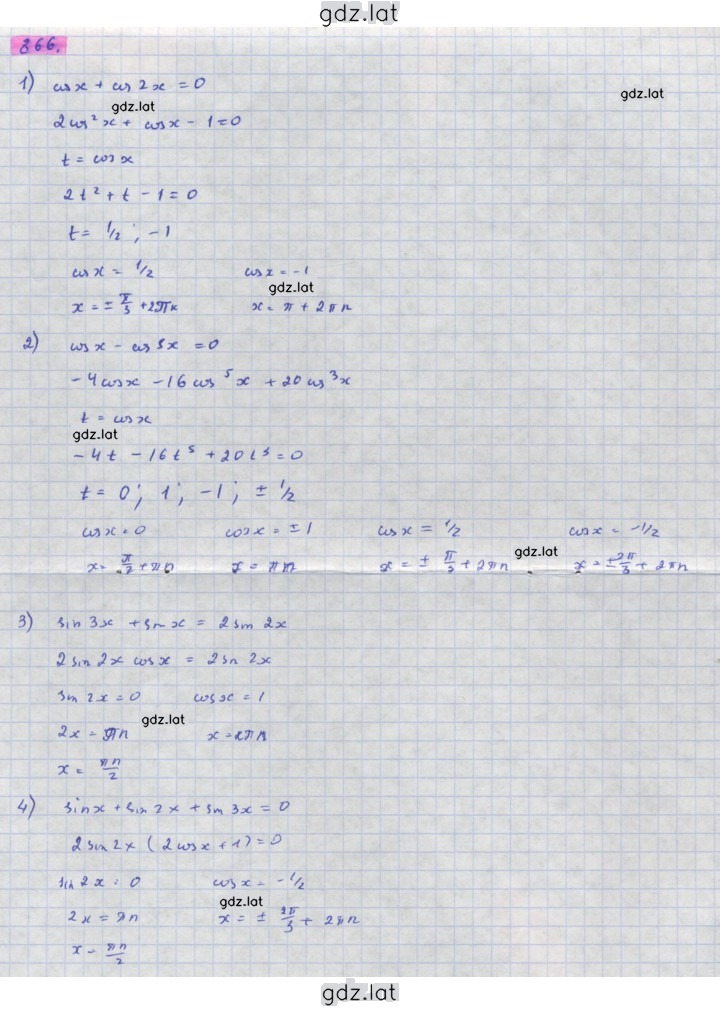 gdz.lat
866.
1) cosx + cos 2x = 0
gdz.lat
gdz.lat
2cos² x + cosx - 1 = 0
t = cos x
2t² + t - 1 = 0
t = 1/2 ; -1
cosx = 1/2 cosx = -1
gdz.lat
x = ± π/3 + 2πk x = π + 2πn
2) cosx - cos 5x = 0
-4cosx - 16cos⁵x + 20cos³x
t = cosx
gdz.lat
-4t - 16t⁵ + 20t³ = 0
t = 0; 1; -1; ± 1/2
cosx = 0 cosx = ±1 cosx = 1/2 cosx = -1/2
gdz.lat
x = π/2 + πn x = πn x = ± π/3 + 2πn x = ± 2π/3 + 2πn
3) sin 3x + sin x = 2sin 2x
2sin 2x cosx = 2sin 2x
sin 2x = 0 cosx = 1
gdz.lat
2x = πn x = 2πn
x = πn/2
4) sinx + sin 2x + sin 3x = 0
2sin 2x (2cosx + 1) = 0
sin 2x = 0 cosx = -1/2
gdz.lat
2x = πn x = ± 2π/3 + 2πn
x = πn/2
gdz.lat